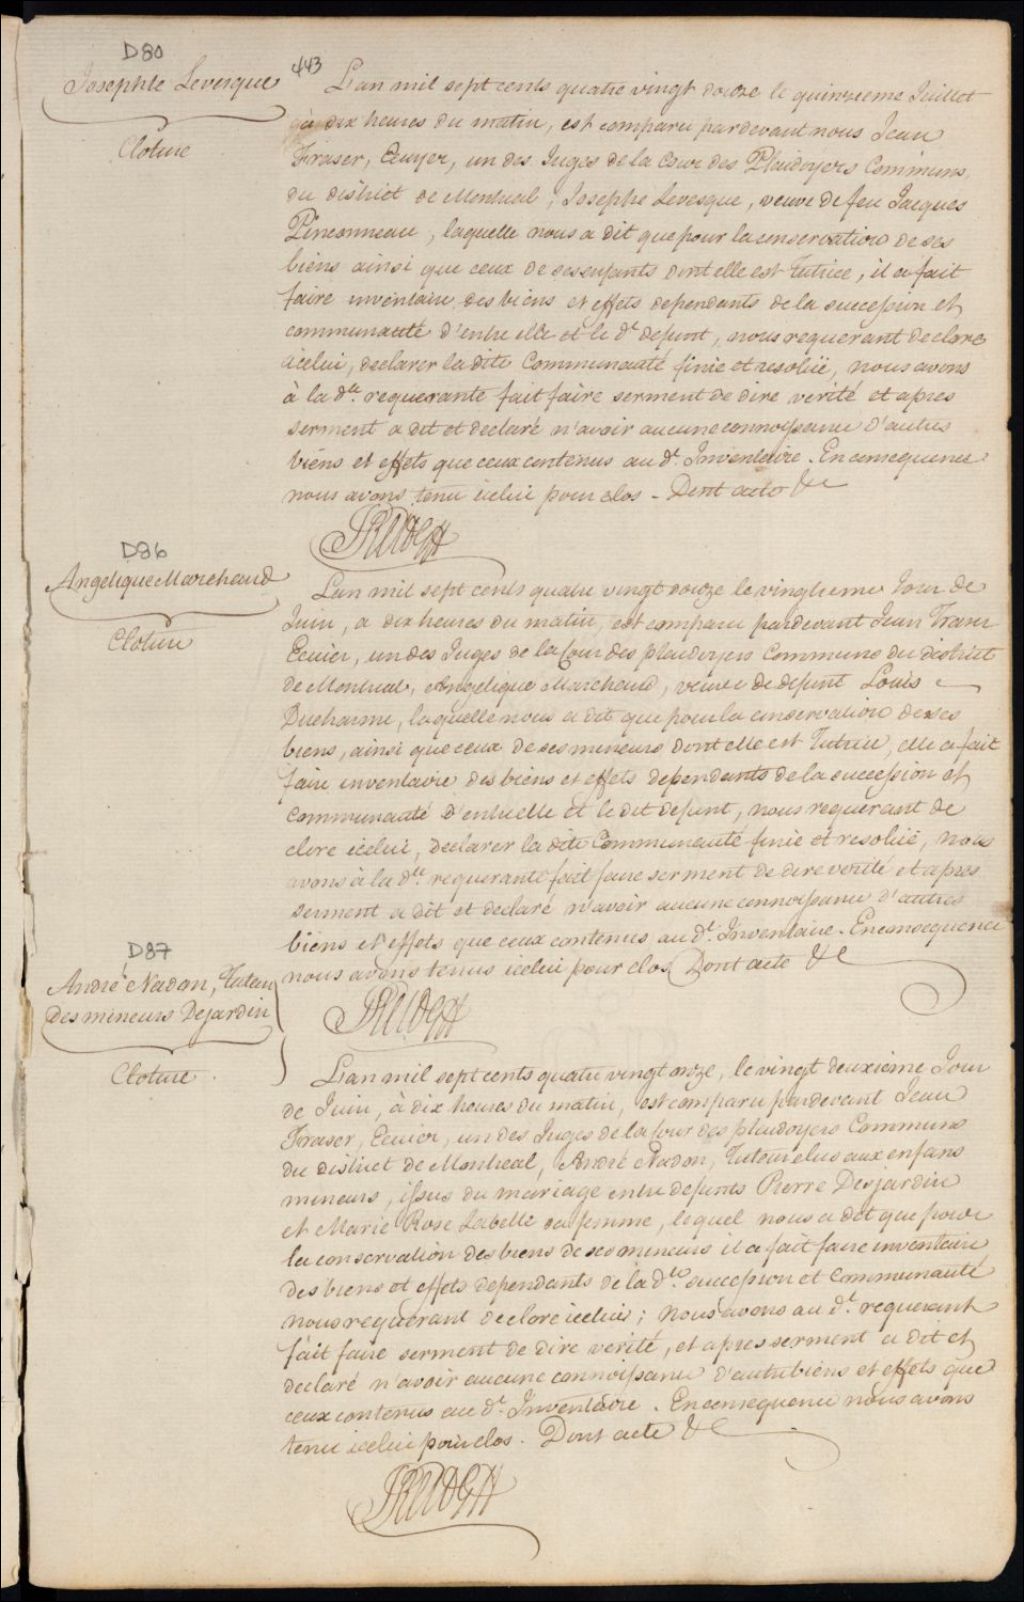 D80
Josephte Levesque
Cloture
443
L'an mil sept cents quatre vingt douze le quinzieme Juillet
à dix heures du matin, est comparu pardevant nous Jean
Fraser, Ecuyer, un des Juges de la Cour des Plaidoyers Communs,
du district de Montreal, Josephe Levesque, veuve de feu Jacques
Pinconneau, laquelle nous a dit que pour la conservation de ses
biens ainsi que ceux de ses enfants dont elle est Tutrice, il a fait
faire inventaire des biens et effets dependants de la succession et
communauté d'entre elle et le dt defunt, nous requerant de clore
icelui, declarer la dite Communauté finie et resoluë, nous avons
à la dte. requerante fait faire serment de dire verité et apres
serment a dit et declaré n'avoir aucune connoissance d'autres
biens et effets que ceux contenus au dt. Inventaire. En consequence
nous avons tenu icelui pour clos - Dont acte &c
D86
Angelique Marchand
Cloture
L'an mil sept cents quatre vingt douze le vingtieme Jour de
Juin, a dix heures du matin, est comparu pardevant Jean Fraser
Ecuier, un des Juges de la Cour des plaidoyers Communs du district
de Montreal, Angelique Marchand, veuve de defunt Louis
Ducharme, laquelle nous a dit que pour la conservation de ses
biens, ainsi que ceux de ses mineurs dont elle est Tutrice, elle a fait
faire inventaire des biens et effets dependants de la succession et
communauté d'entre elle et le dit defunt, nous requerant de
clore icelui, declarer la dite Communauté finie et resoluë, nous
avons à la dte. requerante fait faire serment de dire verité et apres
serment a dit et declaré n'avoir aucune connoissance d'autres
biens et effets que ceux contenus au dt. Inventaire. En consequence
nous avons tenus icelui pour clos Dont acte &c
D87
André Nadon, Tuteur
des mineurs Dejardin
Cloture
L'an mil sept cents quatre vingt onze, le vingt deuxième Jour
de Juin, à dix heures du matin, est comparu pardevant Jean
Fraser, Ecuier, un des Juges de la Cour des plaidoyers Communs
du district de Montreal, André Nadon, Tuteur elus aux enfans
mineurs, issus du mariage entre defunts Pierre Desjardin
et Marie Rose Labelle sa femme, lequel nous a dit que pour
la conservation des biens de ses mineurs il a fait faire inventaire
des biens et effets dependants de la dte. succession et Communauté
nous requerant de clore icelui; nous avons au dt. requerant
fait faire serment de dire verité, et apres serment a dit et
declaré n'avoir aucune connoissance d'autre biens et effets que
ceux contenus au dt. Inventaire. En consequence nous avons
tenu icelui pour clos. Dont acte &c